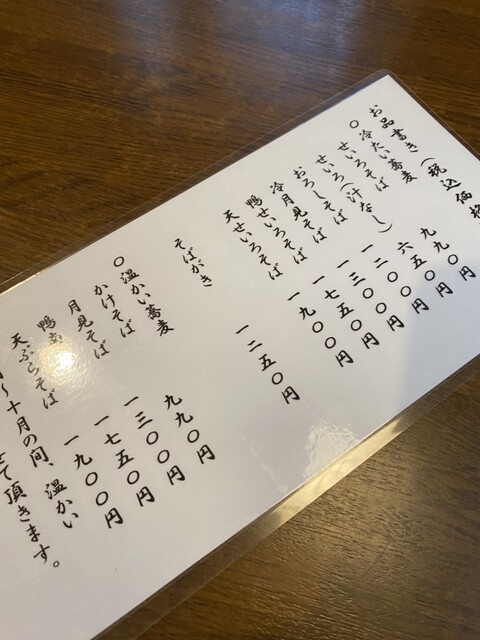 お品書き(税込価格
○冷たい蕎麦
せいろそば 九九〇円
せいろ(汁なし) 六五〇円
おろしそば 一二〇〇円
冷月見そば 一三〇〇円
鴨せいろそば 一七五〇円
天せいろそば 一九〇〇円
そばがき 一二五〇円
○温かい蕎麦
かけそば 九九〇円
月見そば 一三〇〇円
鴨 一七五〇円
天ぷらそば 一九〇〇円
〜十月の間、温かい
せて頂きます。